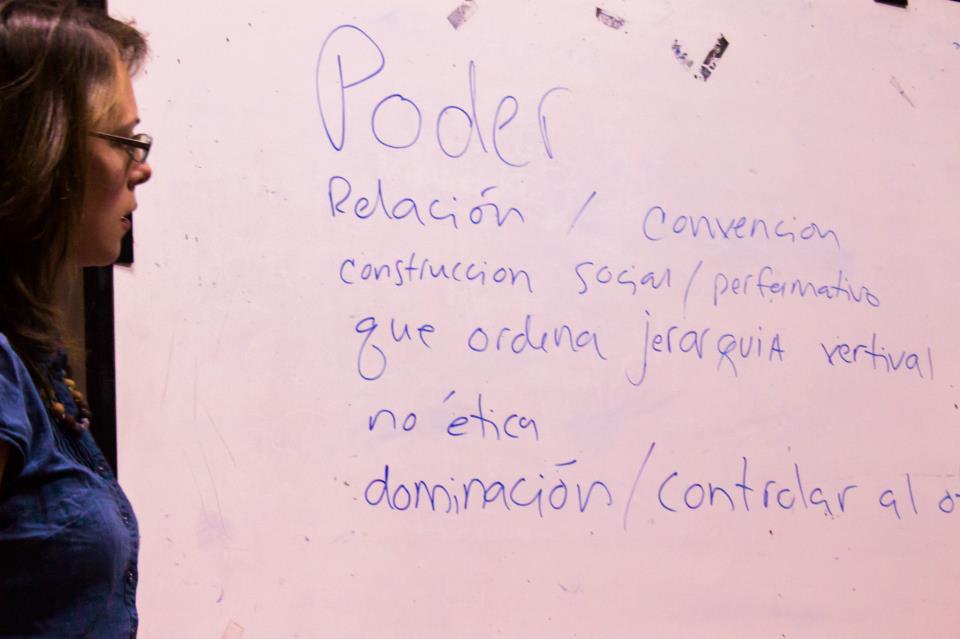 Poder
Relación / Convencion
construccion social / performativo
que ordena jerarquiA vertival
no ética
dominación / controlar al